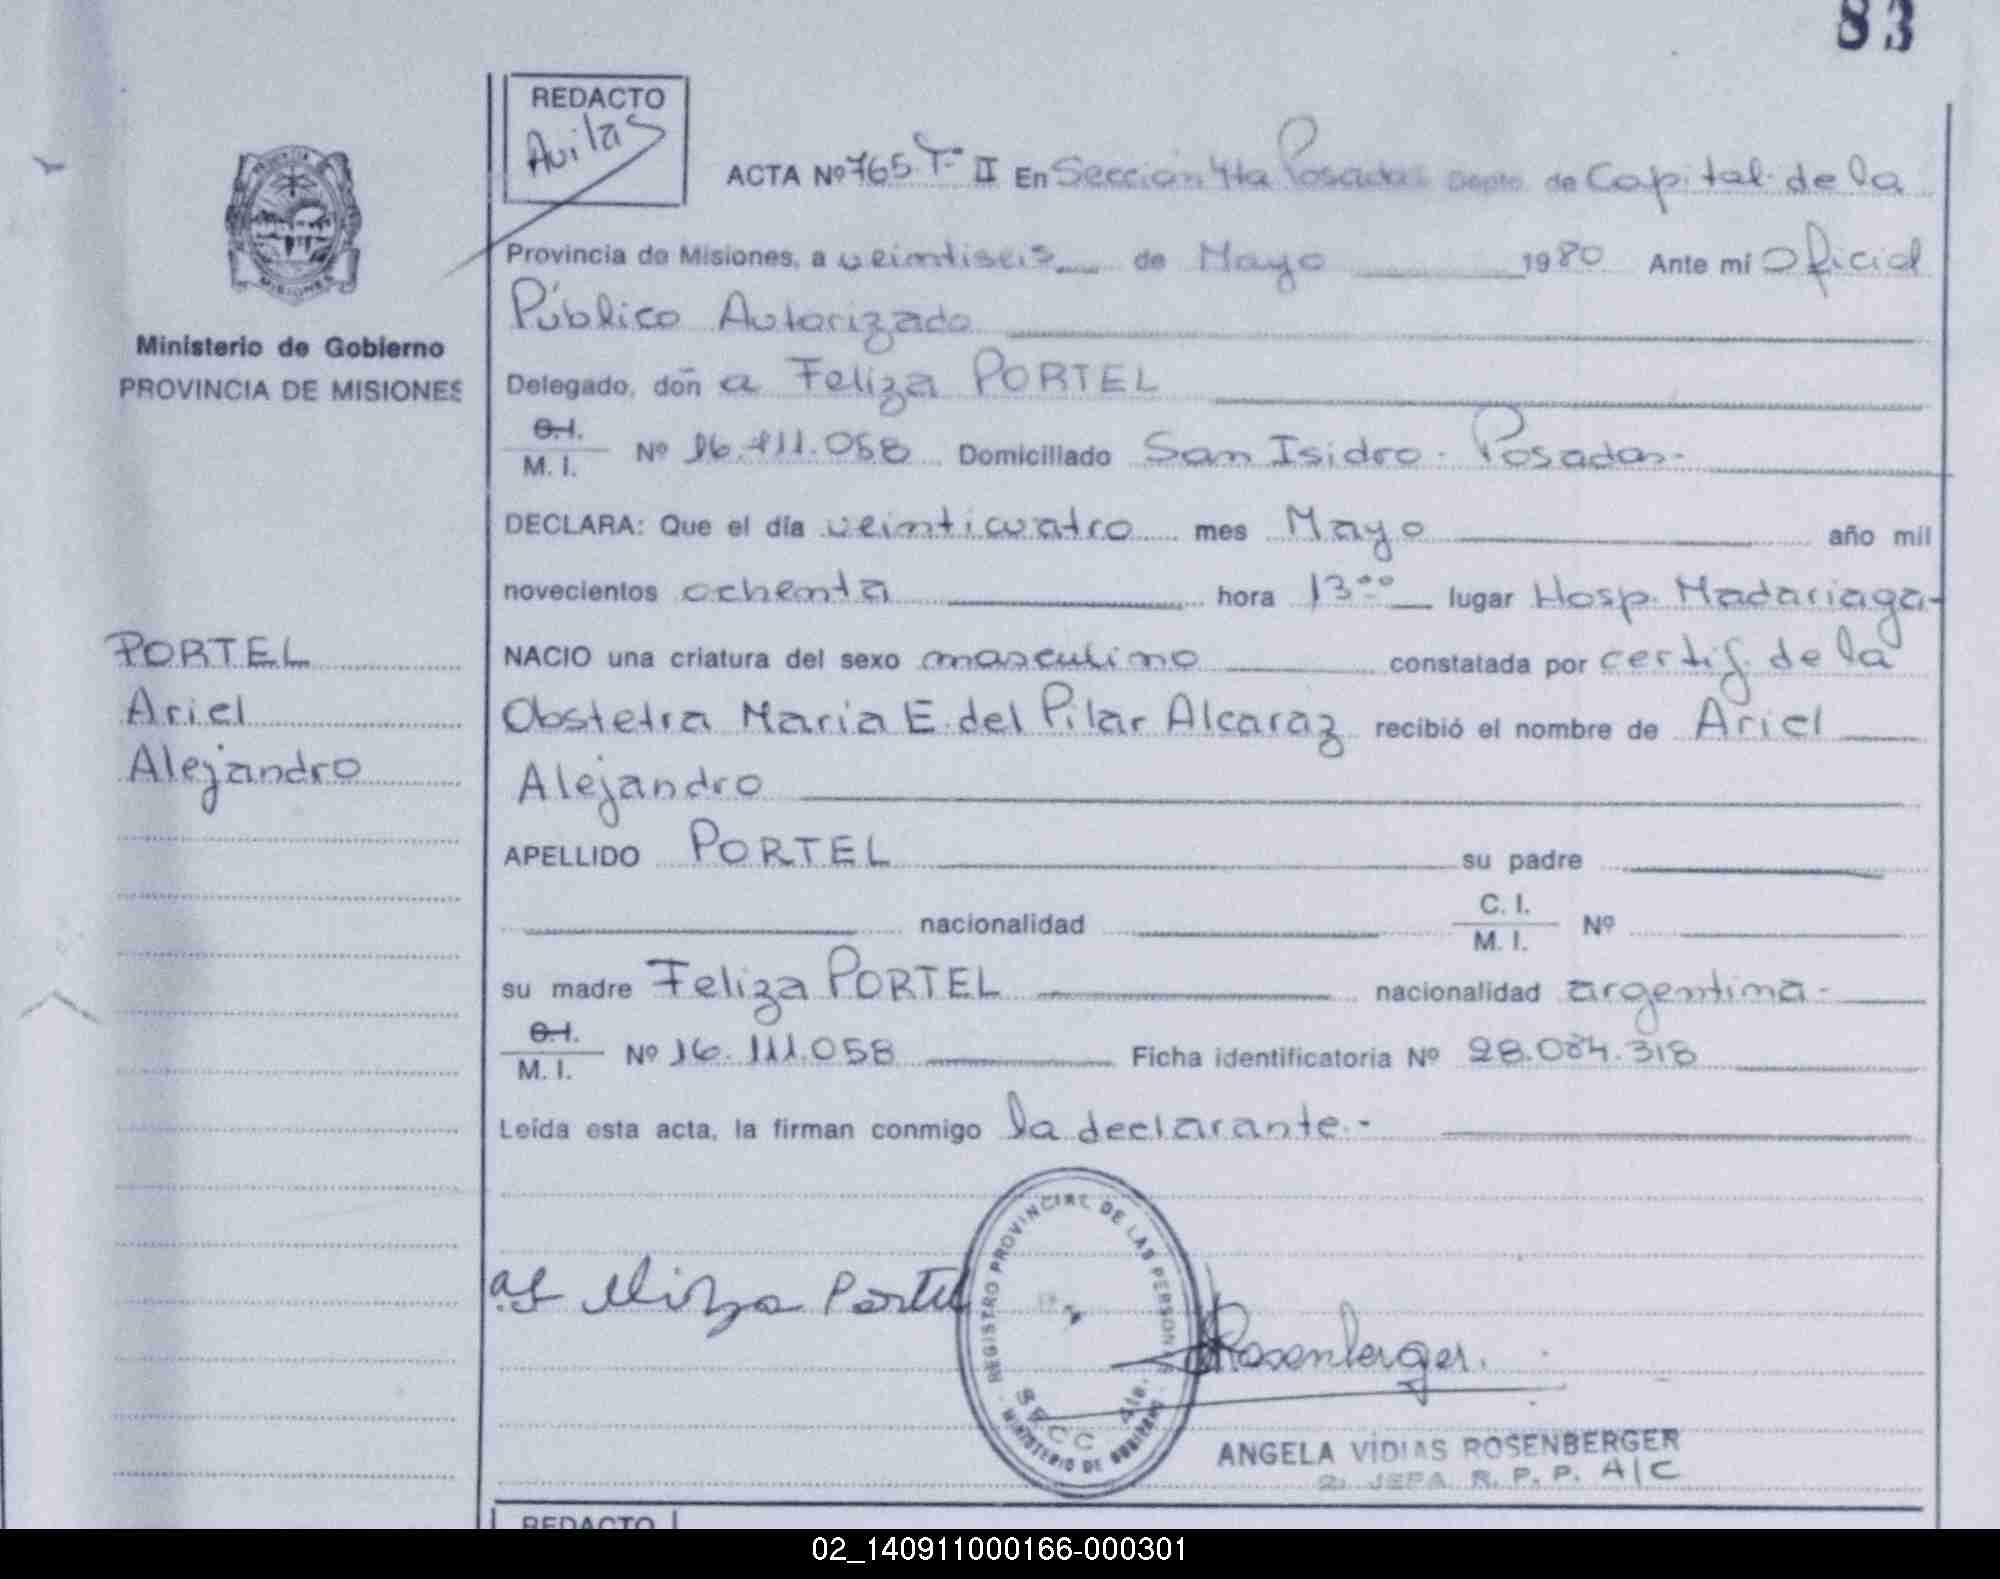 83
REDACTO
Avilas
ACTA Nº 765 Tº II En Sección 4ta Posadas Depto. de Capital de la
Provincia de Misiones, a veintiseis de Mayo 1980 Ante mi Oficial
Público Autorizado
Delegado, doñ a Feliza PORTEL
C.I.
M. I. Nº 16.111.058 Domiciliado San Isidro - Posadas-
DECLARA: Que el día veinticuatro mes Mayo año mil
novecientos ochenta hora 13°° lugar Hosp. Madariaga-
NACIO una criatura del sexo masculino constatada por certif. de la
Obstetra Maria E. del Pilar Alcaraz recibió el nombre de Ariel
Alejandro
APELLIDO PORTEL su padre
nacionalidad C. I.
M. I. Nº
su madre Feliza PORTEL nacionalidad argentina-
C.I.
M. I. Nº 16.111.058 Ficha identificatoria Nº 28.084.318
Leída esta acta, la firman conmigo la declarante.-
MISIONES
Ministerio de Gobierno
PROVINCIA DE MISIONES
PORTEL
Ariel
Alejandro
Portel
REGISTRO PROVINCIAL DE LAS PERSONAS
SECC 4ta.
MINISTERIO DE GOBIERNO
Rosenberger.
ANGELA VIDIAS ROSENBERGER
JEFA R. P. P. A/C
REDACTO
02_140911000166-000301